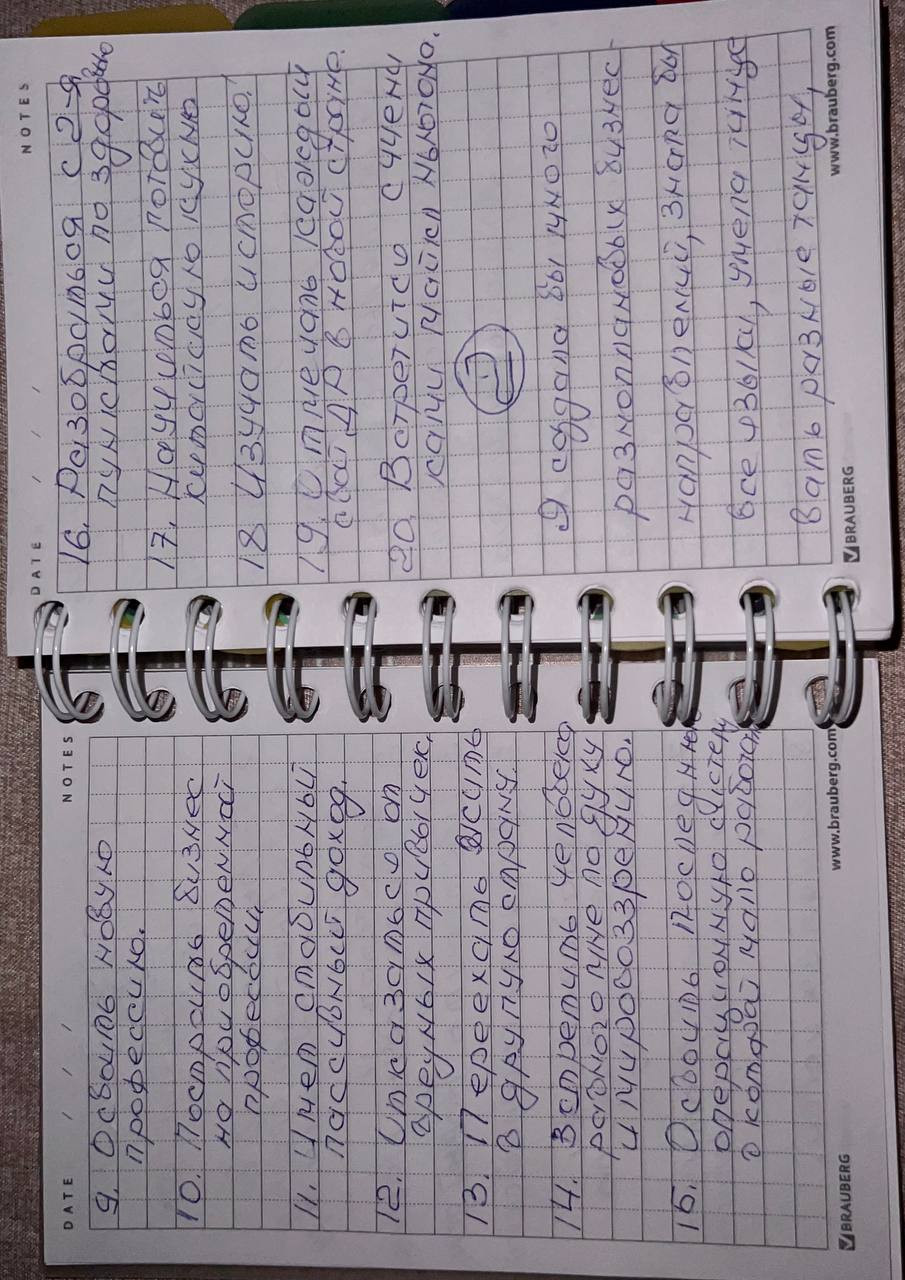 DATE / / NOTES
9. Освоить новую
профессию.
10. Построить бизнес
на приобретенной
професии
11. Имет стабильный
пассивный доход.
12. Отказаться от
вреных привычек.
13. Переехать жить
в другую страну.
14. Встретить человека
равного мне по духу
и мировоззрению.
15. Освоить последнюю
операционную систему
о которой мало
BRAUBERG www.brauberg.com
DATE / / NOTES
16. Разобраться с 2-я
пунктами по здоровью
17. Научиться готовить
китайскую кухню
18 Изучать историю.
19. Отмечать каждый
свой ДР в новой стране.
20. Встретится с учени
ками Майкл Ньютона.
Я создала бы много
разноплановых бизнес
направлений, знала бы
все языки, умела танце
вать разные танцы,
BRAUBERG www.brauberg.com